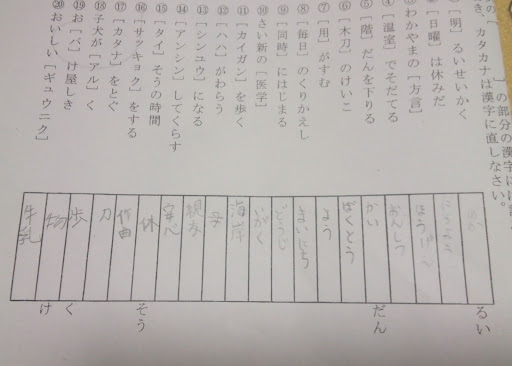 の部分の漢字には
き、カタカナは漢字に直しなさい。
［明］るいせいかく
［日曜］は休みだ
③わかやまの［方言］
④［温室］でそだてる
⑤［階］だんを下りる
⑥［木刀］のけいこ
⑦［用］がすむ
⑧［毎日］のくりかえし
⑨［同時］にはじまる
⑩さい新の［医学］
⑪［カイガン］を歩く
⑫［ハハ］がわらう
⑬［シンユウ］になる
⑭［アンシン］してくらす
⑮［タイ］そうの時間
⑯［サッキョク］をする
⑰［カタナ］をとぐ
⑱子犬が［アル］く
⑲お［バ］け屋しき
⑳おいしい［ギュウニク］
るい
ほうげん
おんしつ
かい だん
ぼくとう
よう
まいにち
どうじ
いがく
海岸
母
親友
安心
休 そう
作曲
刀
歩 く
け
牛乳